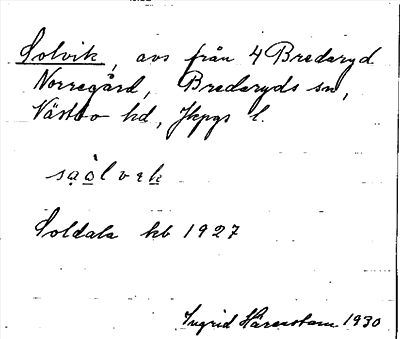 Solvik, avs från 4 Bredaryd
Norregård, Bredaryds sn,
Västbo hd, Jkpgs l.
Soldala kb 1927
Ingrid Hårenstam 1930